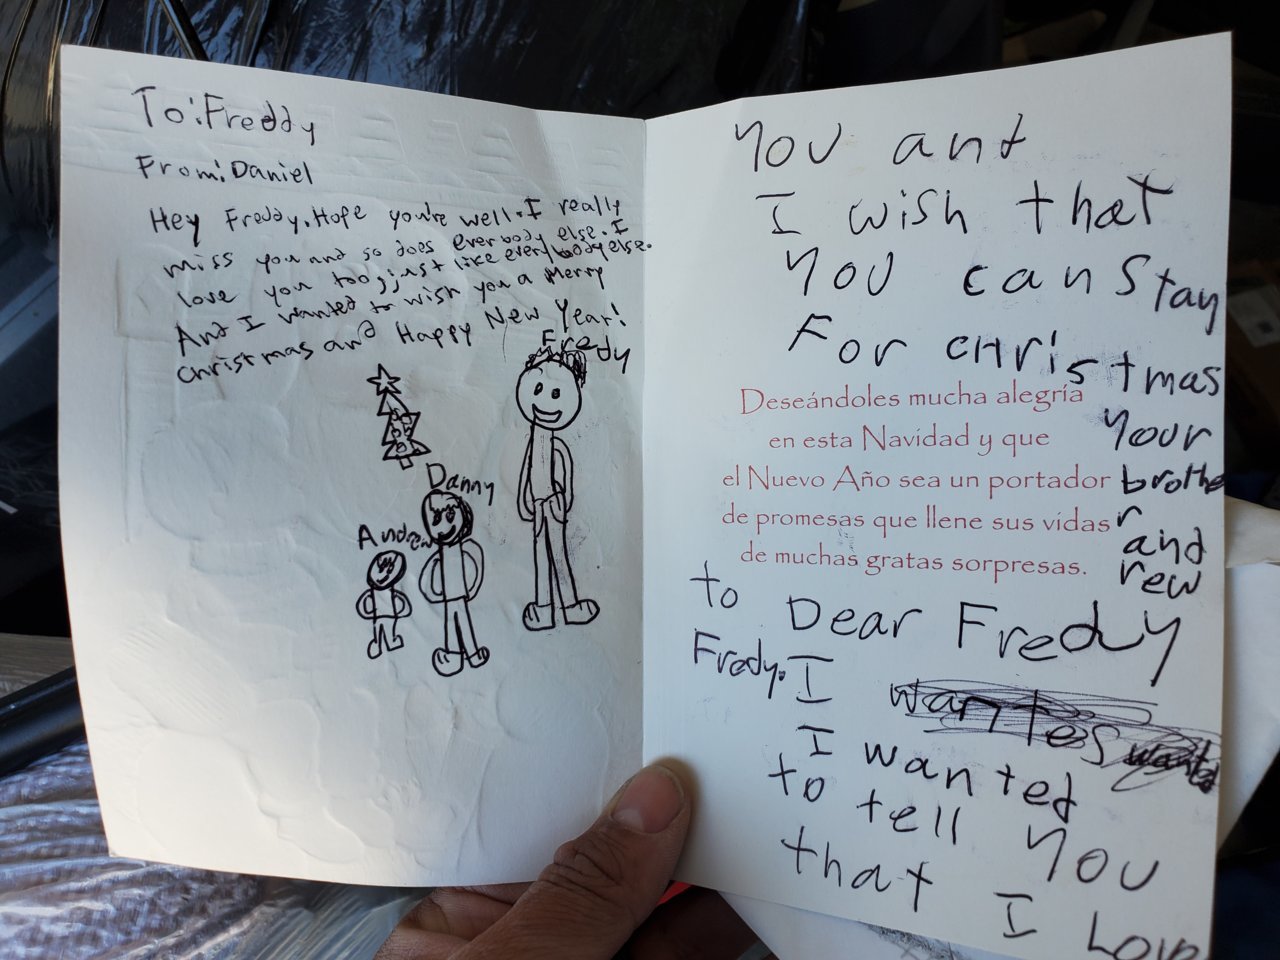 To: Freddy
From: Daniel
Hey Freddy. Hope you're well. I really
miss you and so does everbody else. I
love you too, just like everybody else.
And I wanted to wish you a Merry
christmas and Happy New Year!
Fredy
Danny
Andrew
You and
I wish that
You can Stay
For christmas
Your
brothe
r
and
rew
Deseándoles mucha alegría
en esta Navidad y que
el Nuevo Año sea un portador
de promesas que llene sus vidas
de muchas gratas sorpresas.
to
Fredy.
Dear Fredy
I wantes
I wanted
to tell You
that I Love